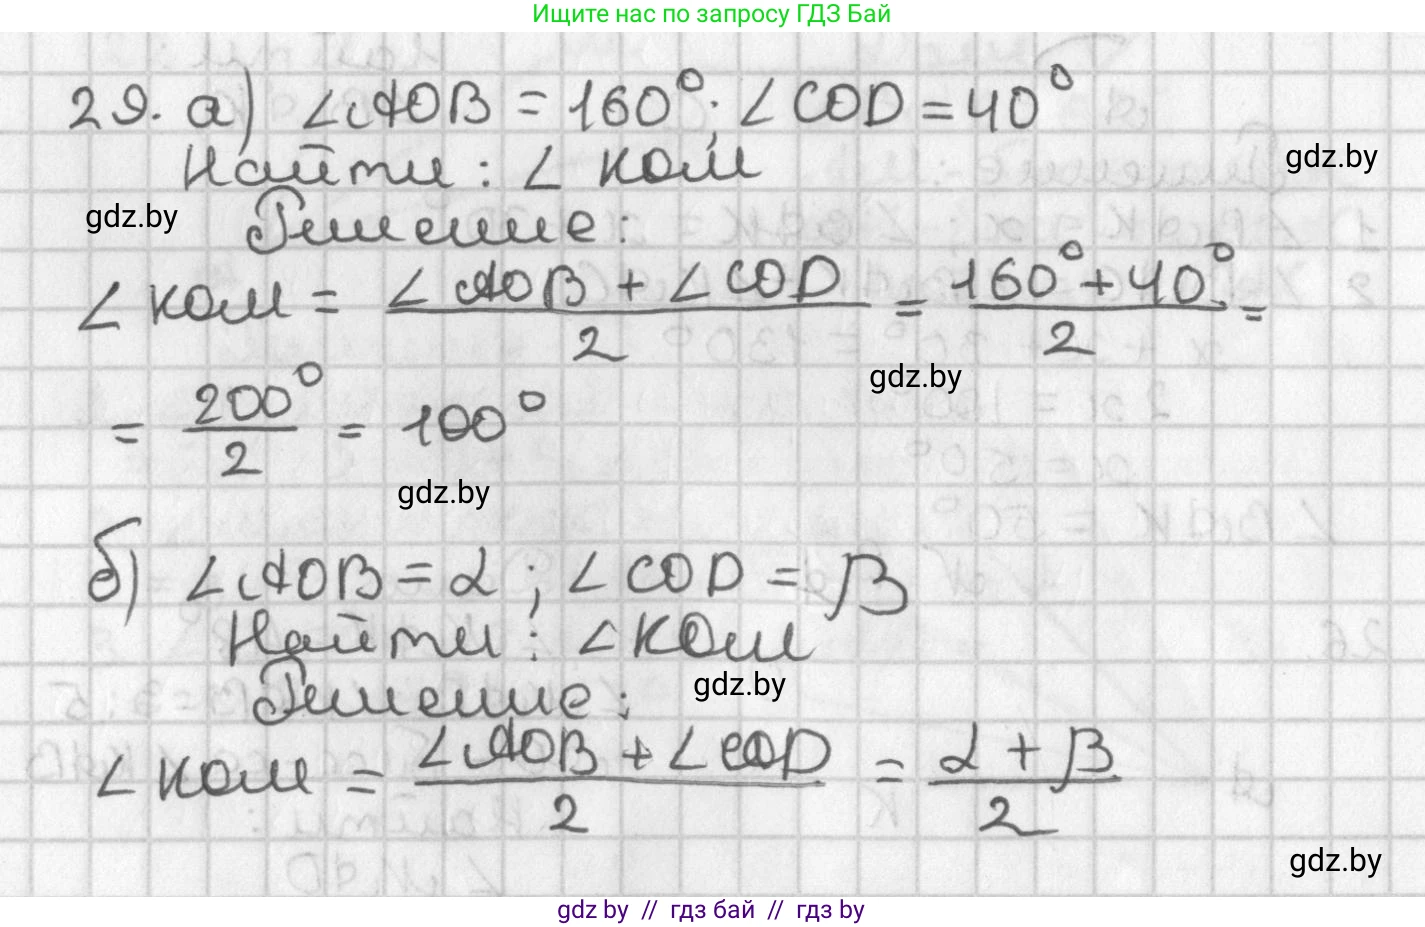 Ищите нас по запросу ГДЗ Бай
29. а) ∠AOB = 160°; ∠COD = 40°
Найти: ∠ КОМ
gdz.by
gdz.by
Решение:
∠ КОМ = (∠AOB + ∠COD)/2 = (160° + 40°)/2 =
gdz.by
= 200°/2 = 100°
gdz.by
б) ∠AOB = α; ∠COD = β
Найти: ∠КОМ
Решение:
gdz.by
∠ КОМ = (∠AOB + ∠COD)/2 = (α + β)/2
gdz.by
gdz by // гдз бай // гдз by